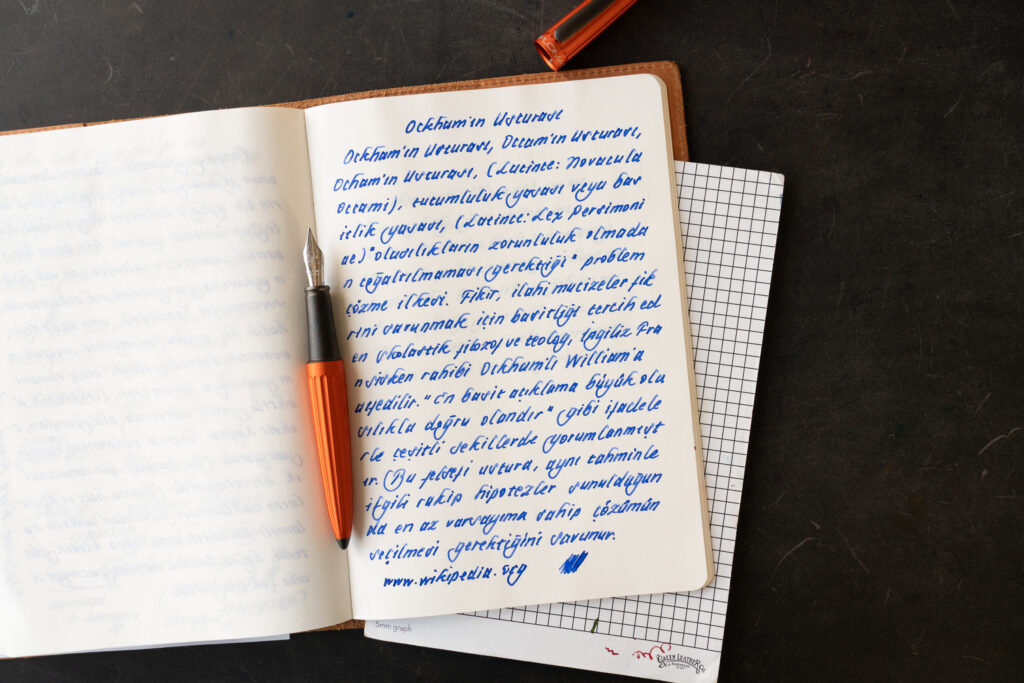 Ockham'ın Usturası
Ockham'ın Usturası, Occam'ın Usturası,
Ocham'ın Usturası, (Latince: Novacula
Occami), tutumluluk yasası veya bas
itlik yasası, (Latince: Lex Persimoni
ae) "olasılıkların zorunluluk olmada
n çoğaltılmaması gerektiği" problem
çözme ilkesi. Fikir, ilahi mucizeler fik
rini savunmak için basitliği tercih ed
en skolastik filozof ve teolog, İngiliz Fra
nsisken rahibi Ockham'lı William'a
atfedilir. "En basit açıklama büyük ola
sılıkla doğru olandır" gibi ifadele
rle çeşitli şekillerde yorumlanmışt
ır. (Bu felsefi ustura, aynı tahminle
ilgili rakip hipotezler sunulduğun
da en az varsayıma sahip çözümün
seçilmesi gerektiğini savunur.
www.wikipedia.org
5mm graph
Galen Leather Co